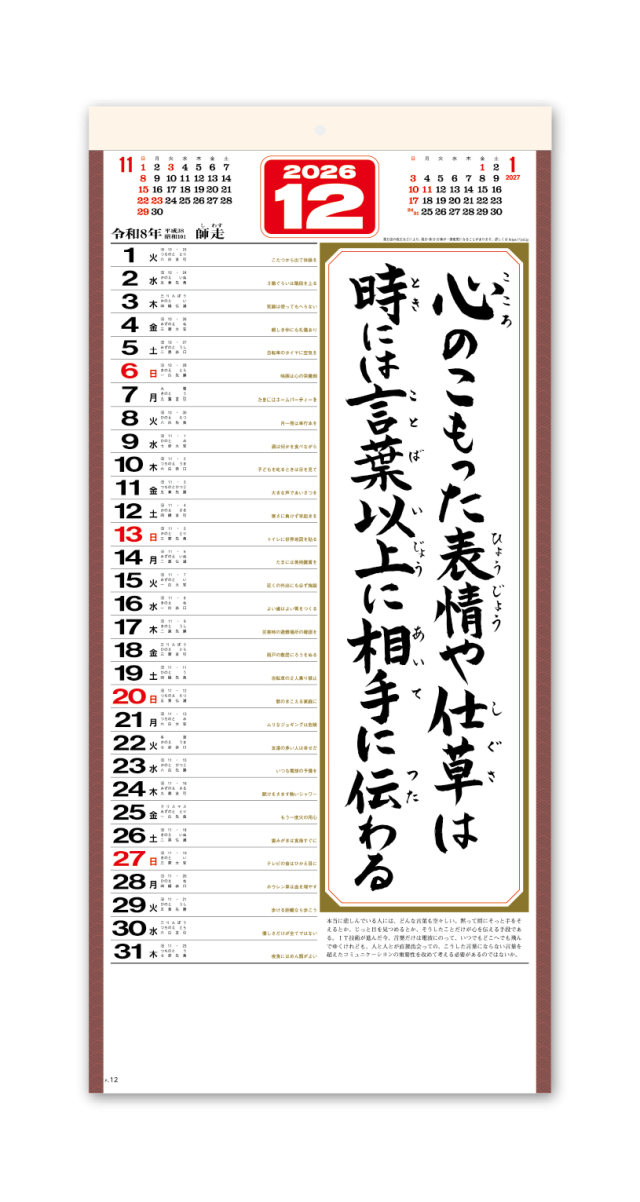 11
日 月 火 水 木 金 土
1 2 3 4 5 6 7
8 9 10 11 12 13 14
15 16 17 18 19 20 21
22 23 24 25 26 27 28
29 30
2026
12
1
2027
日 月 火 水 木 金 土
1 2
3 4 5 6 7 8 9
10 11 12 13 14 15 16
17 18 19 20 21 22 23
24/31 25 26 27 28 29 30
令和8年 平成38 昭和101 師走
しわす
1 火 こたつから出て体操を
2 水 2階ぐらいは階段を上る
3 木 笑顔は使ってもへらない
4 金 親しき仲にも礼儀あり
5 土 自転車のタイヤに空気を
6 日 映画は心の栄養剤
7 月 たまにはホームパーティーを
8 火 月一冊は単行本を
9 水 酒は何かを食べながら
10 木 子どもを叱るときは目を見て
11 金 大きな声であいさつを
12 土 寒さに負けず早起きを
13 日 トイレに世界地図を貼る
14 月 たまには美術鑑賞を
15 火 近くの外出にも必ず施錠
16 水 よい歯はよい胃をつくる
17 木 災害時の避難場所の確認を
18 金 雨戸の敷居にろうをぬる
19 土 自転車の2人乗り禁止
20 日 歌のきこえる家庭に
21 月 ムリなジョギングは危険
22 火 友達の多い人は幸せだ
23 水 いつも電球の予備を
24 木 眠けをさます熱いシャワー
25 金 もう一度火の用心
26 土 歯みがきは食後すぐに
27 日 テレビの音はひかえ目に
28 月 ホウレン草は血を増やす
29 火 歩ける距離なら歩こう
30 水 優しさだけが全てではない
31 木 夜食にはめん類がよい
心のこもった表情や仕草は
こころ ひょうじょう しぐさ
時には言葉以上に相手に伝わる
とき ことば いじょう あいて つた
本当に悲しんでいる人には、どんな言葉も空々しい。黙って肩にそっと手をそ
えるとか、じっと目を見つめるとか、そうしたことだけが心を伝える手段であ
る。IT技術が進んだ今、言葉だけは電波にのって、いつでもどこへでも飛ん
でゆくけれども、人と人とが直接出会っての、こうした言葉にならない言葉を
超えたコミュニケーションの重要性を改めて考える必要があるのではないか。
A.12